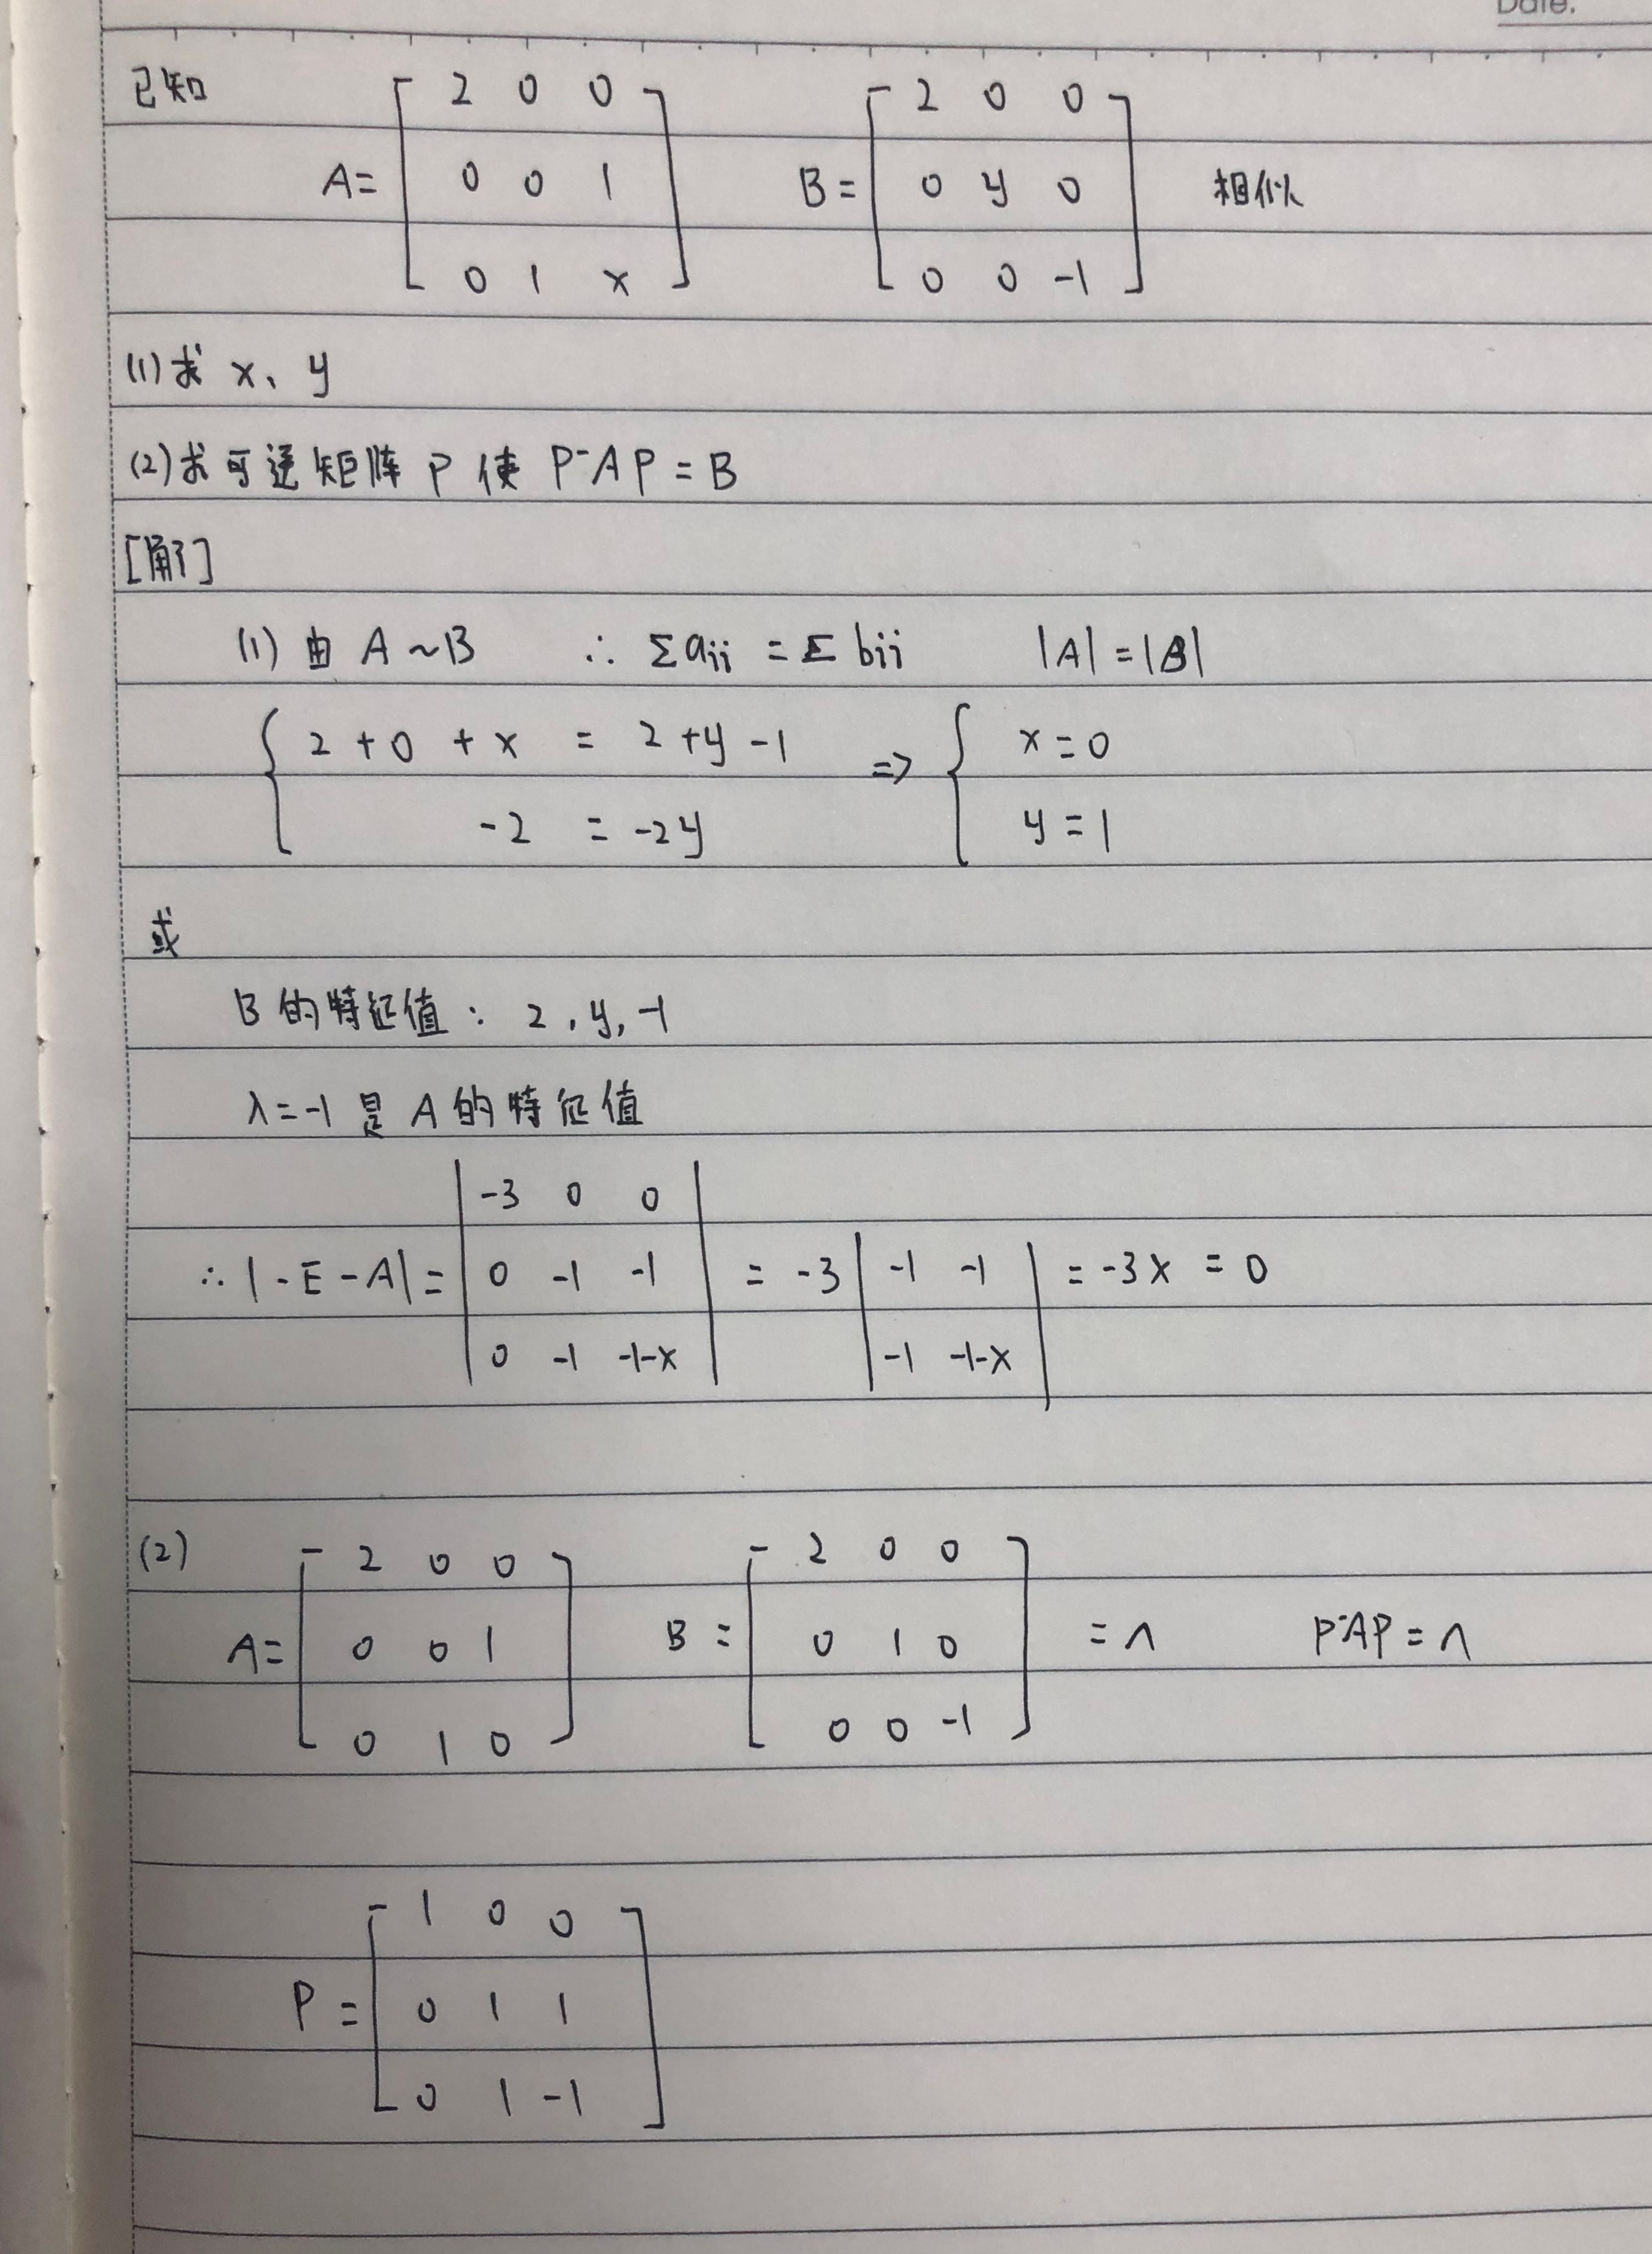 Date.
已知
A= [ 2 0 0 ; 0 0 1 ; 0 1 x ] B= [ 2 0 0 ; 0 y 0 ; 0 0 -1 ] 相似
(1)求 x、y
(2)求可逆矩阵 P 使 P⁻AP = B
[解]
(1) 由 A~B ∴ Σaii = Σbii |A|=|B|
{ 2+0+x = 2+y-1 ; -2 = -2y ⇒ { x=0 ; y=1
或
B的特征值: 2, y, -1
λ=-1 是 A 的特征值
∴ |-E-A| = | -3 0 0 ; 0 -1 -1 ; 0 -1 -1-x | = -3 | -1 -1 ; -1 -1-x | = -3x = 0
(2)
A= [ 2 0 0 ; 0 0 1 ; 0 1 0 ] B= [ 2 0 0 ; 0 1 0 ; 0 0 -1 ] = Λ P⁻AP = Λ
P= [ 1 0 0 ; 0 1 1 ; 0 1 -1 ]